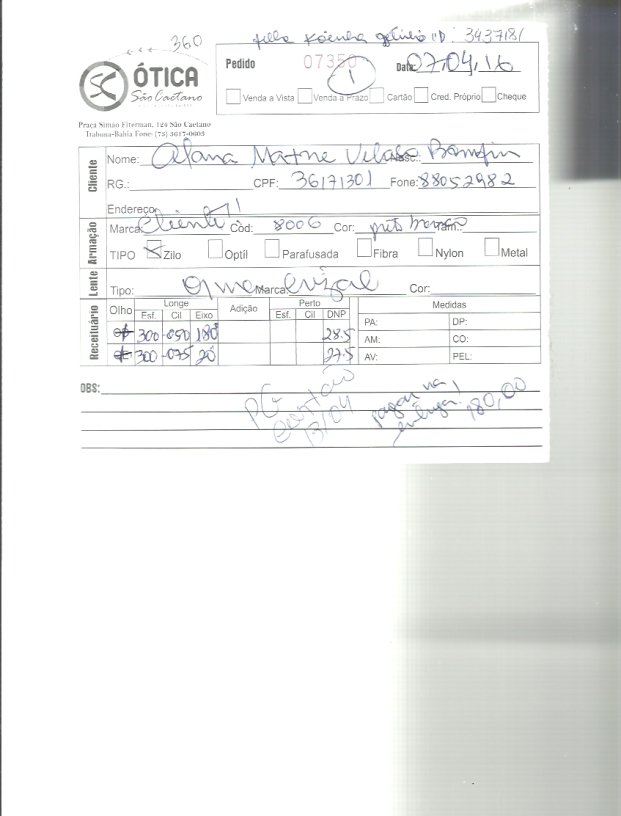 360
filha
3437181
ÓTICA
São Caetano
Pedido 07350 Data: 07.04.16
1
Venda a Vista Venda a Prazo Cartão Cred. Próprio Cheque
Praça Simão Fiterman, 124 São Caetano
Itabuna-Bahia Fone: (73) 3617-0603
Cliente
Nome: Alana
RG.: CPF: 36171301 Fone: 88052982
Endereço
Armação
Marca: Cliente Cód: 8006 Cor: preto
TIPO Zilo Optíl Parafusada Fibra Nylon Metal
Lente
Tipo: Marca: Cor:
Receituário
Olho Longe Adição Perto DNP Medidas
Esf. Cil Eixo Esf. Cil
300 -050 180° 28.5
300 -075 20° 27.5
PA: DP:
AM: CO:
AV: PEL:
OBS:
PG Cartão 13/04
pagar na entrega! 180,00